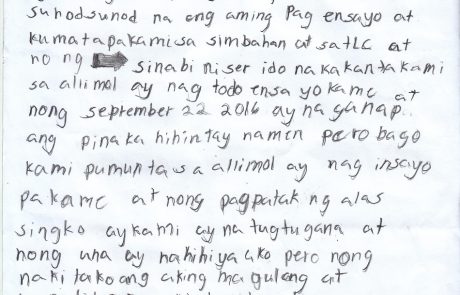 sunodsunod na ang aming Pag ensayo at
kumatapakamisa simbahan at satLC at
no ng sinabi ni ser ido na kakantakami
sa allimol ay nag todo ensa yo kame at
nong september 22 2016 ay na ganap..
ang pinaka hihintay namin pero bago
kami pumunta sa allimol ay nag insayo
pa kame at nong pagpatak ng alas
singko ay kami ay na tugtugana at
nong una ay nahihiya ako pero nong
naki tako ang aking magulang at